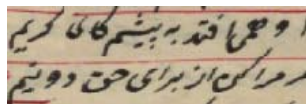 او همی افتد به پیشم کای کریم
مر مرا کن از برای حق دو نیم